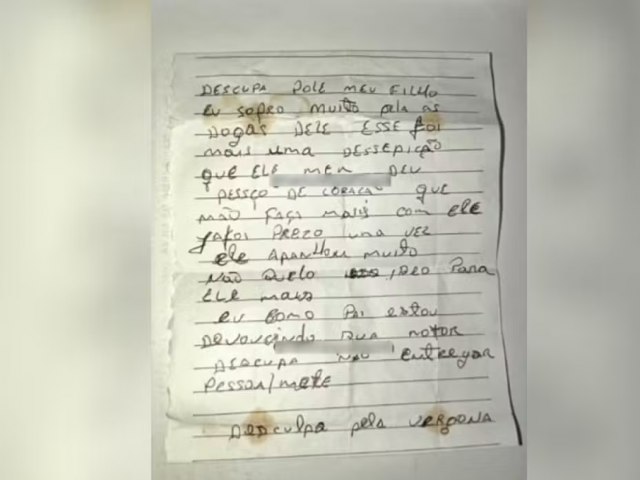 DESCUPA POLE MEU FILHO
EU SOFRO MUITO pela as
DOGAS DELE ESSE foi
mais uma DESSEPIÇÃO
QUE ELE MEM DEU
PESSÇO DE CORACAO QUE
NÃO FAÇA MAIS COM ELE
JAFOI PREZO UMA VEZ
ELE APANHOU MUITO
NÃO QUELO PARA
ELE MAIS
EU COMO PAI ESTOU
DEVOUCINDO SUA MOTOR
DESCUPA NÃO ENTREGAR
PESSOA/METE
DESCULPA pela VERGONA